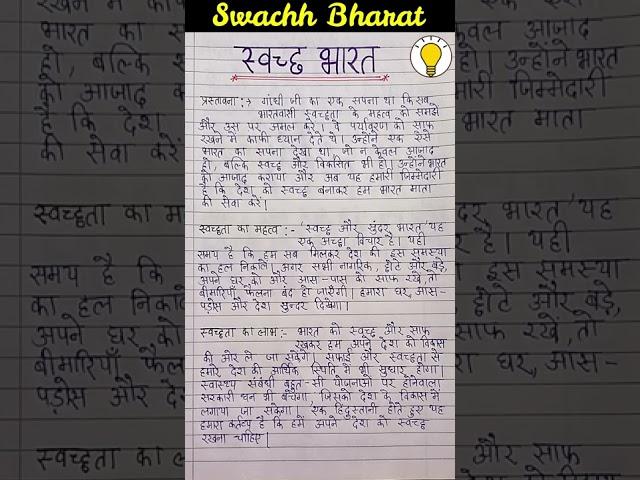 Swachh Bharat
स्वच्छ भारत
प्रस्तावना :→ गांधी जी का एक सपना था कि सब
भारतवासी स्वच्छता के महत्व को समझे
और उस पर अमल करें। वे पर्यावरण को साफ
रखने में काफी ध्यान देते थे। उन्होंने एक ऐसे
भारत का सपना देखा था, जो न केवल आजाद
हो, बल्कि स्वच्छ और विकसित भी हो। उन्होंने भारत
को आजाद कराया और अब यह हमारी जिम्मेदारी
है कि देश को स्वच्छ बनाकर हम भारत माता
की सेवा करें।
स्वच्छता का महत्व :- 'स्वच्छ और सुंदर भारत' यह
एक अच्छा विचार है। यही
समय है कि हम सब मिलकर देश की इस समस्या
का हल निकालें। अगर सभी नागरिक, छोटे और बड़े,
अपने घर को और आस-पास को साफ रखें, तो
बीमारियाँ फैलना बंद हो जाएंगी। हमारा घर, आस-
पड़ोस और देश सुन्दर दिखेगा।
स्वच्छता का लाभ :- भारत को स्वच्छ और साफ
रखकर हम अपने देश को विकास
की ओर ले जा सकेंगे। सफाई और स्वच्छता से
हमारे देश की आर्थिक स्थिति में भी सुधार होगा।
स्वास्थ्य संबंधी बहुत-सी योजनाओं पर होनेवाला
सरकारी धन भी बचेगा, जिसको देश के विकास में
लगाया जा सकेगा। एक हिंदुस्तानी होते हुए यह
हमारा कर्तव्य है कि हमें अपने देश को स्वच्छ
रखना चाहिए।